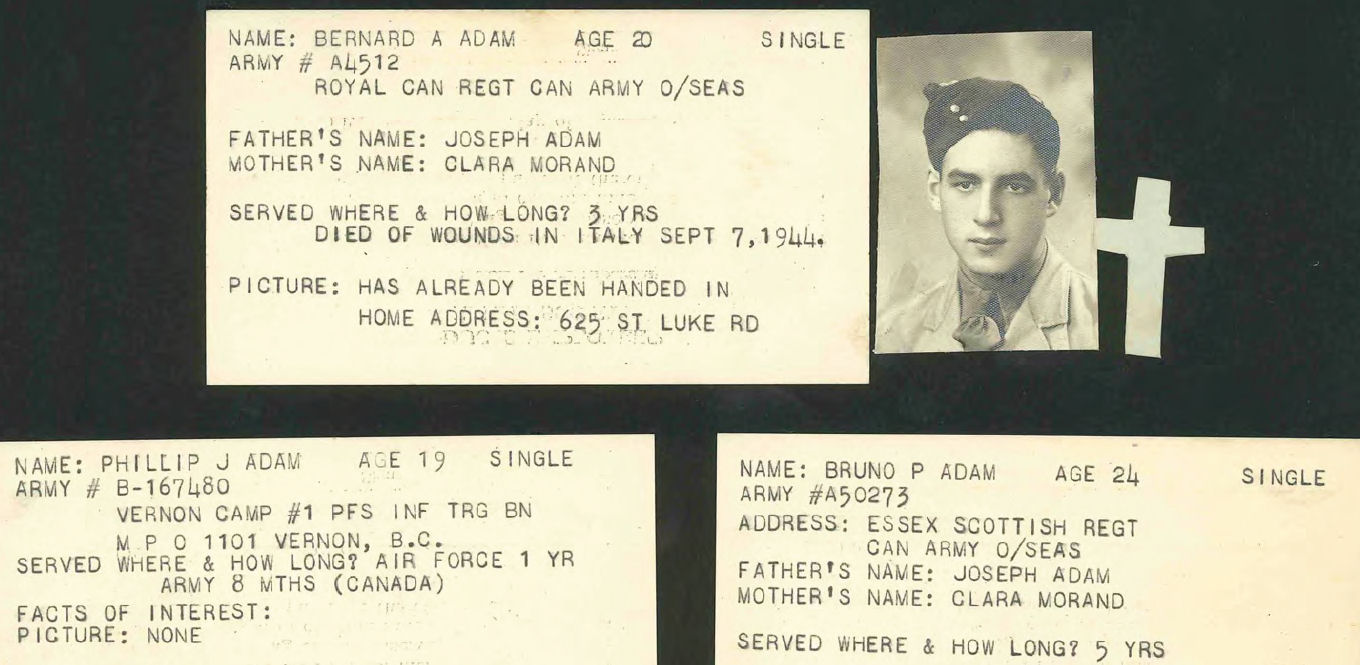 NAME: BERNARD A ADAM AGE 20 SINGLE
ARMY # A4512
ROYAL CAN REGT CAN ARMY O/SEAS
FATHER'S NAME: JOSEPH ADAM
MOTHER'S NAME: CLARA MORAND
SERVED WHERE & HOW LONG? 3 YRS
DIED OF WOUNDS IN ITALY SEPT 7,1944.
PICTURE: HAS ALREADY BEEN HANDED IN
HOME ADDRESS: 625 ST LUKE RD
NAME: PHILLIP J ADAM AGE 19 SINGLE
ARMY # B-167480
VERNON CAMP #1 PFS INF TRG BN
M P O 1101 VERNON, B.C.
SERVED WHERE & HOW LONG? AIR FORCE 1 YR
ARMY 8 MTHS (CANADA)
FACTS OF INTEREST:
PICTURE: NONE
NAME: BRUNO P ADAM AGE 24 SINGLE
ARMY #A50273
ADDRESS: ESSEX SCOTTISH REGT
CAN ARMY O/SEAS
FATHER'S NAME: JOSEPH ADAM
MOTHER'S NAME: CLARA MORAND
SERVED WHERE & HOW LONG? 5 YRS